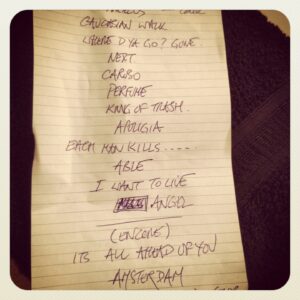 CAUCASIAN WALK
WHERE D'YA GO? GONE.
NEXT.
CARUSO
PERFUME
KING OF TRASH.
APOLOGIA
EACH MAN KILLS.....
ABLE
I WANT TO LIVE
ANGEL
(ENCORE)
ITS ALL AHEAD OF YOU
AMSTERDAM